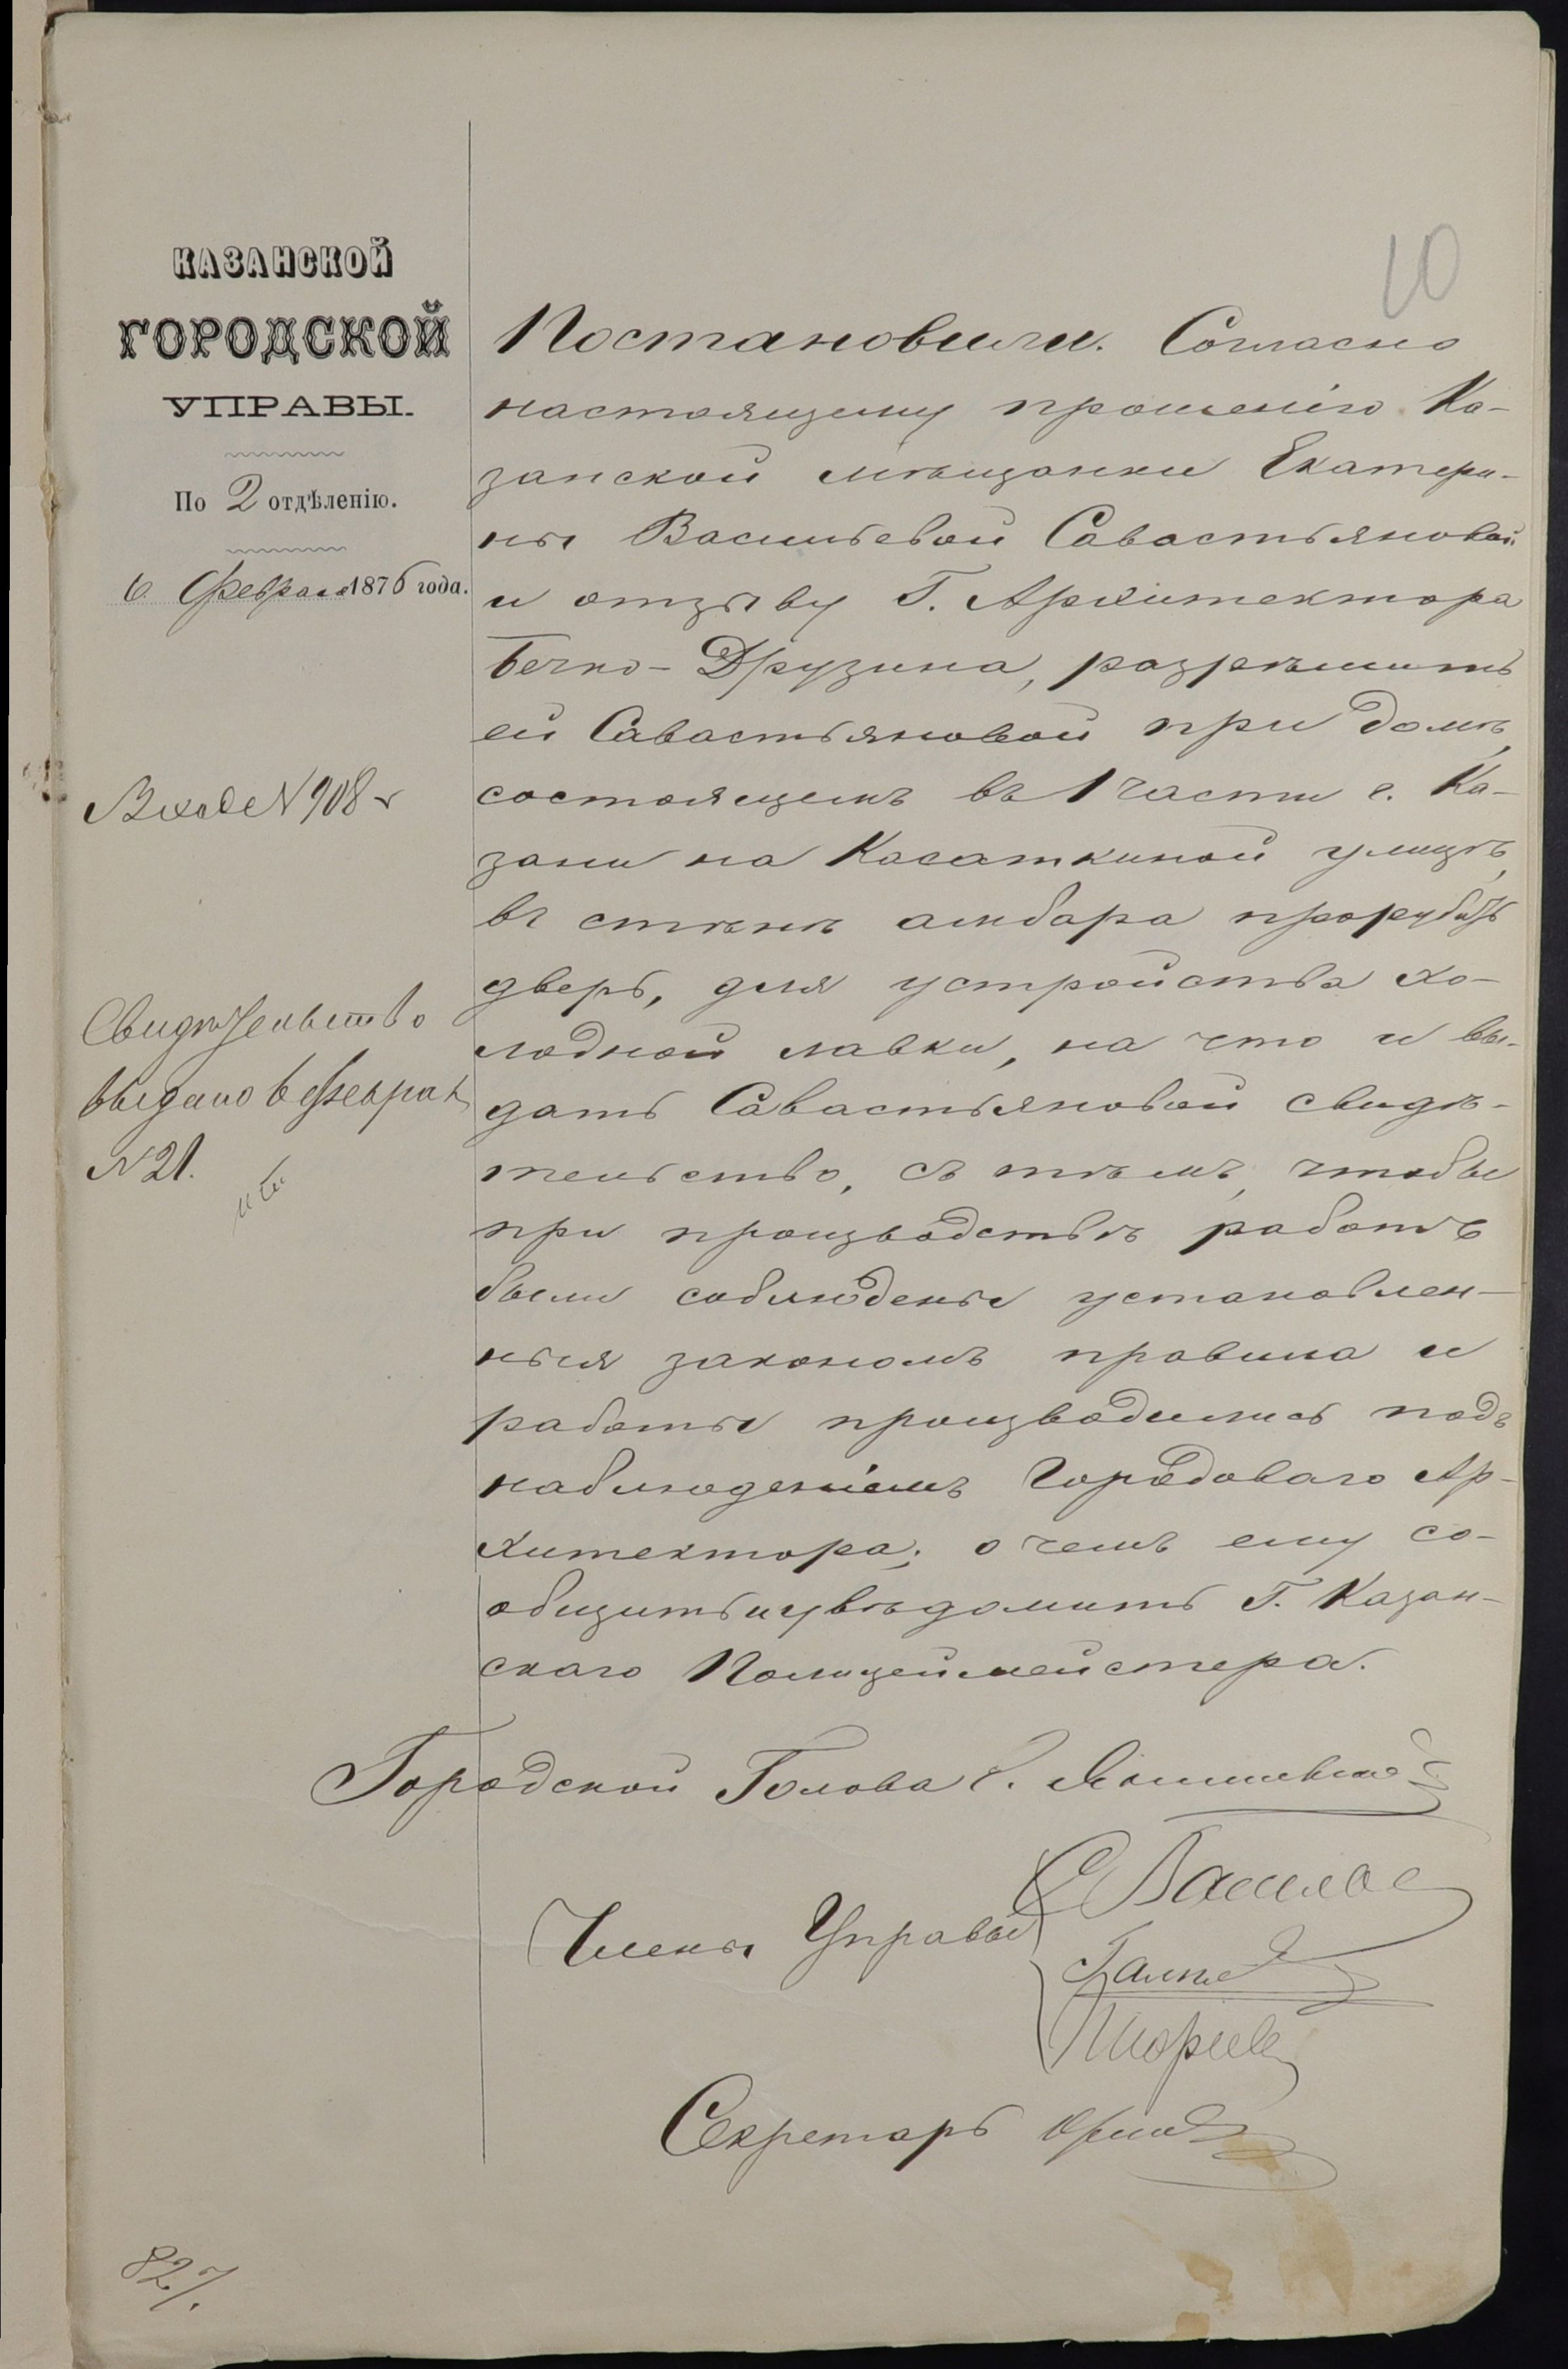 10
КАЗАНСКОЙ
ГОРОДСКОЙ
УПРАВЫ.
По 2 отдѣленію.
6 Февраля 1876 года.
Вход № 908
Свидѣтельство
выдано 6 Феврал
№ 21.
Постановили. Согласно
настоящему прошенію Ка-
занской мѣщанки Екатери-
ны Васильевой Савастьяновой
и отзыву Г. Архитектора
Бечко-Друзина, разрѣшить
ей Савастьяновой при домѣ,
состоящемъ въ 1 части г. Ка-
зани на Касаткиной улицѣ,
въ стѣнѣ амбара прорубить
дверь, для устройства хо-
лодной лавки, на что и вы-
дать Савастьяновой свидѣ-
тельство, съ тѣмъ, чтобы
при производствѣ работъ
были соблюдены установлен-
ныя закономъ правила и
работы производились подъ
наблюденіемъ Городоваго Ар-
хитектора; о чемъ ему со-
общить и увѣдомить Г. Казан-
скаго Полицеймейстера.
Городской Голова Э. Янишевскій
Члены Управы
Секретарь
827.